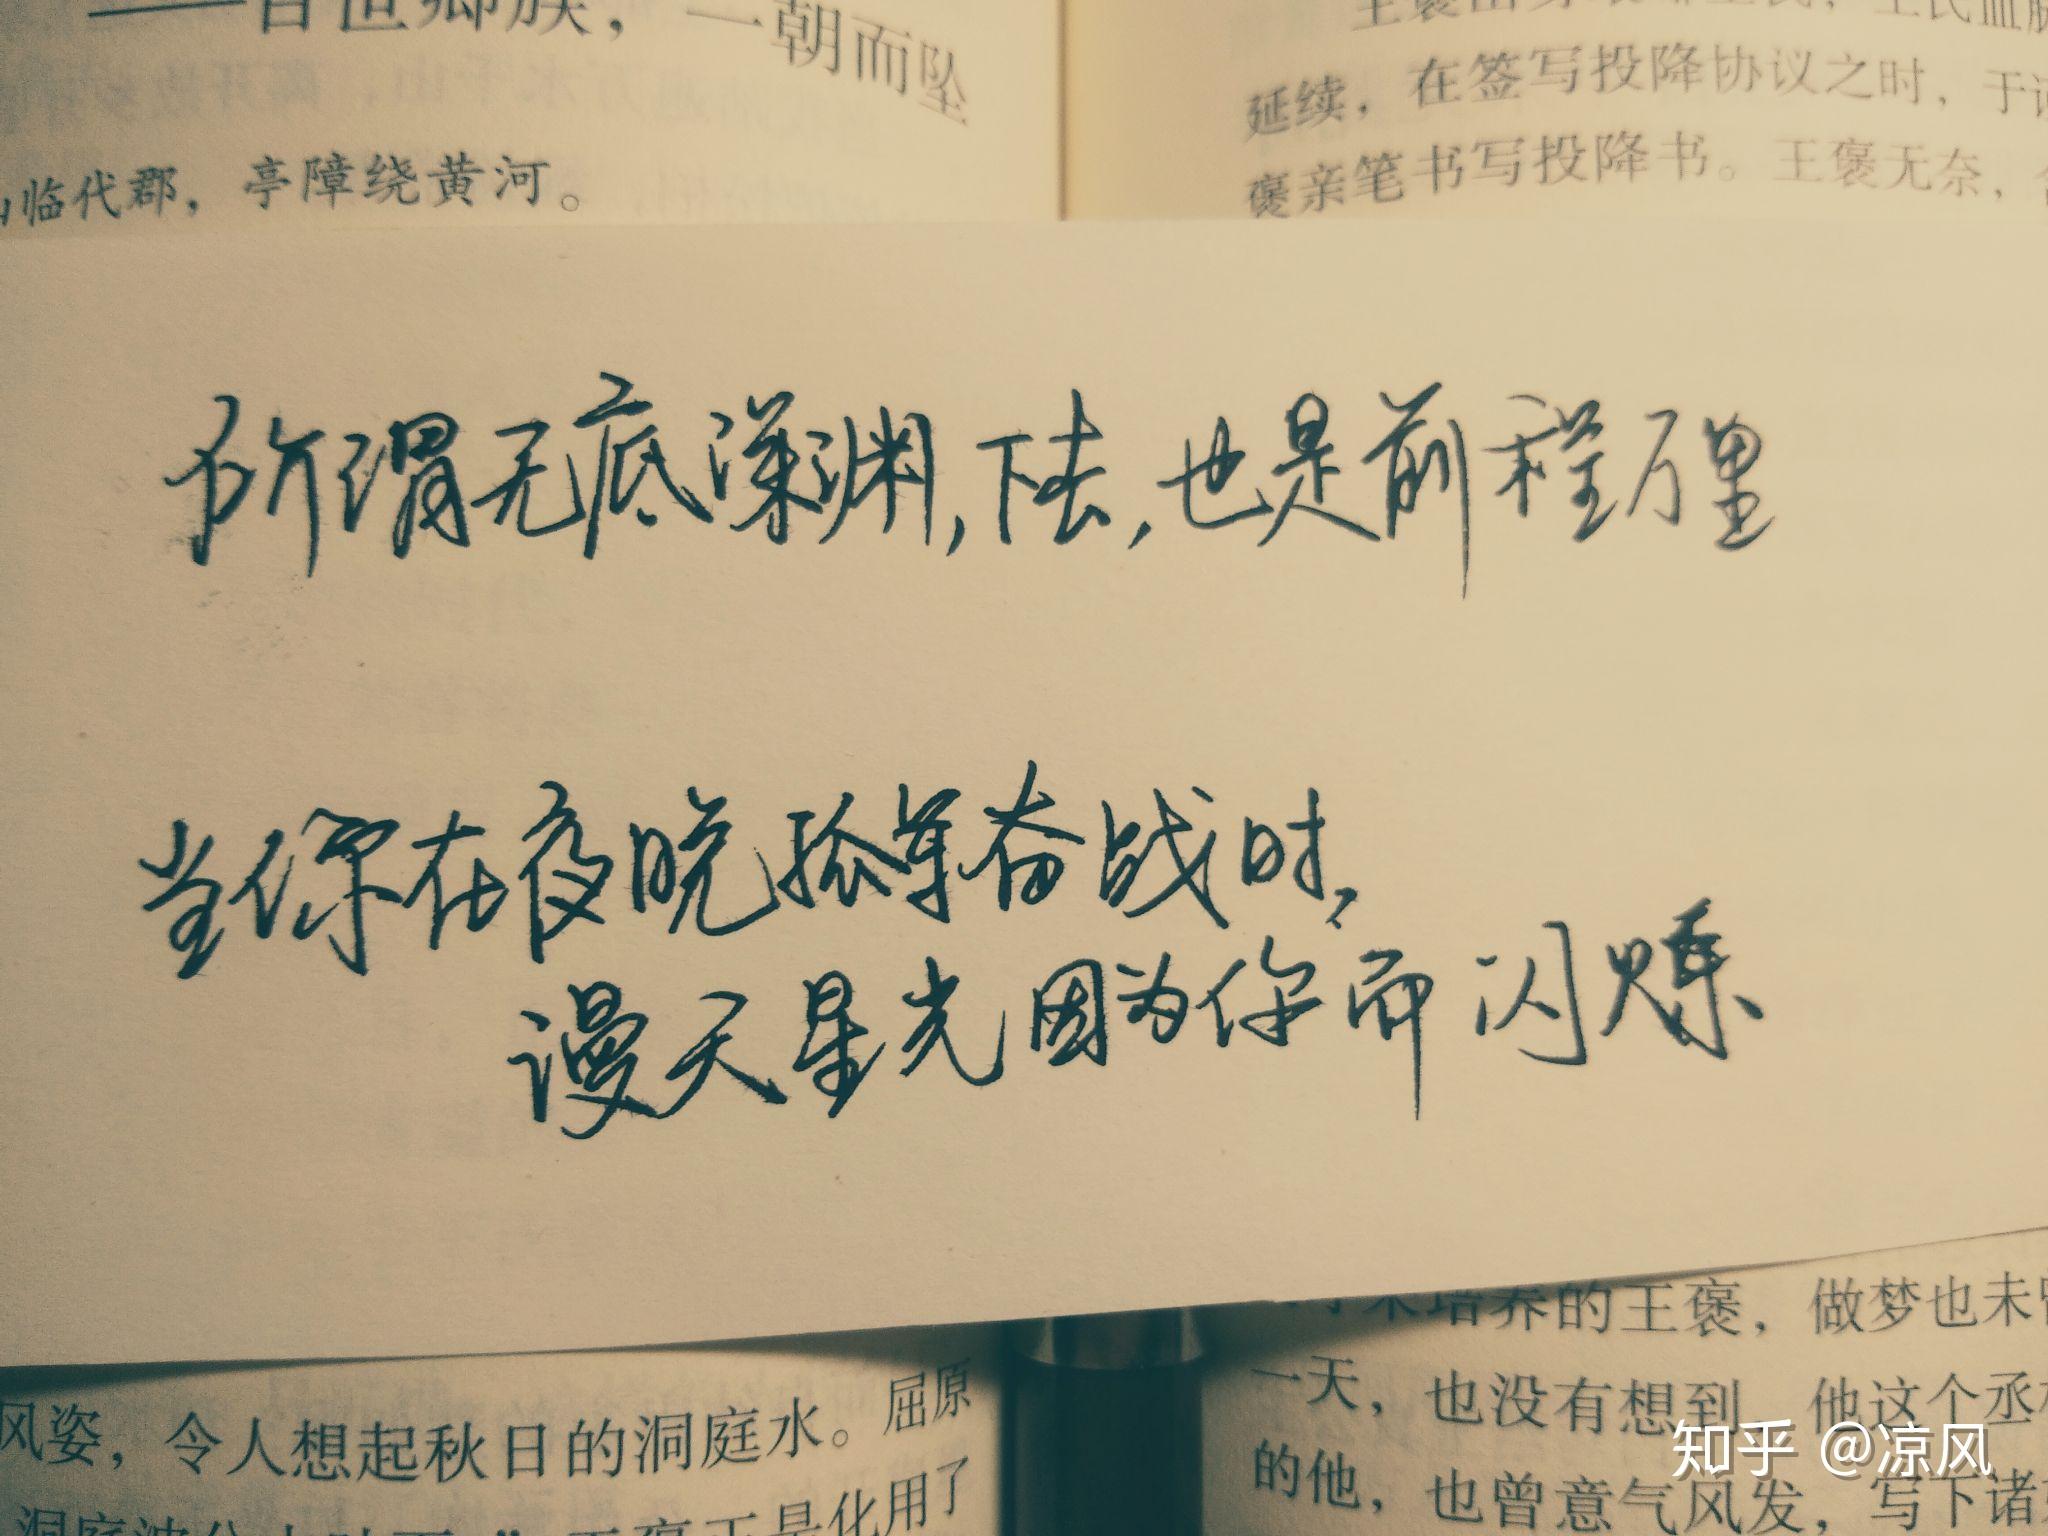 百世卿族，一朝而坠
临代郡，亭障绕黄河。
延续，在签写投降协议之时，于
褒亲笔书写投降书。王褒无奈，
所谓无底深渊，下去，也是前程万里
当你在夜晚孤军奋战时，
漫天星光因为你而闪烁
培养的王褒，做梦也未
一天，也没有想到，他这个丞
的他，也曾意气风发，写下诸
风姿，令人想起秋日的洞庭水。屈原
化用了
知乎 @凉风